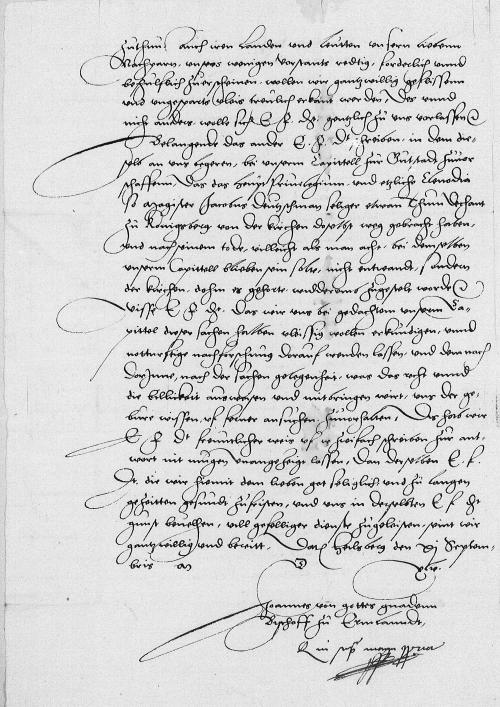 zuthun auch iren Landen und leutten unsern lieben
Nachparn, unsers wenigen vorstants redtig, forderlich unnd
behulflich zuerscheinen, wollen wir gantzwillig geflissenn
und ungesparts vleis treulich erkant werden, Des unnd
nicht anders, wolle sich E. F. Dt. gentzlich zu uns vorlassen
Belangende das ander E. F. Dt. schreiben, in dem die-
selb an uns begeren, bei unserm Capittell zur Gutstadt zuuor
schaffenn, Das das Privilegium und etzliche Clenodia
so Magister Jacobus seliger etwan Thumdechant
zu Königsberg von der kirchen doselbst weg gebracht haben,
und nach seinem tode, villeicht als man acht, bei demselben
unserm Capittell blieben sein solte, nicht entwandt, sondern
der kirchen, dohin es gehorte, widderumb zugestelt worde
wisse E. F. Dt. Das wir uns bei gedachtem unserm Ca-
pittel dieser sachen halben vleissig wollen erkundigen, unnd
notturftige nachforschung darauf wenden lassen, und dem nach
, nach der sachen gelegenheit, was das recht unnd
die billickeit ausweisen und mitbringen wirt, uns der ge-
bure wissen, uf ferner ansuchen zuuorhalten, Des hab wir
E. F. Dt. freuntlicher weis uf ir zwifach schreiben zur ant-
wort nit mugen lassen, Dan derselben E. F.
Dt. die wir hiemit dem lieben got seliglich und zu langen
gezeitten gesundt zufristen, und uns in derselben E. F. Dt.
gunst beuelhen, vill gefelliger dienste zugeleisten, seint wir
gantzwillig und bereitt. Datum Heilsberg den xj Septem-
bris xlv.
Joannes von gottes gnadenn
Bischoff zu Ermlanndt,
manu propria